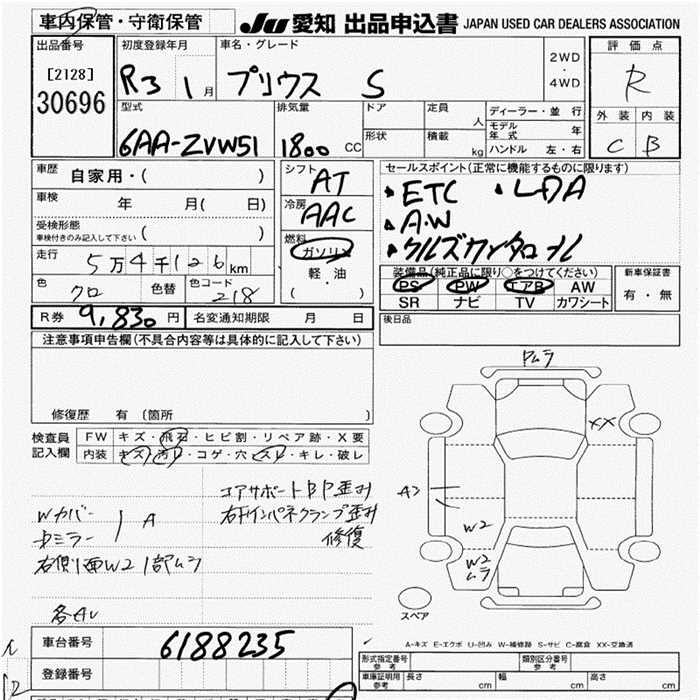 車内保管・守衛保管 JU 愛知 出品申込書 JAPAN USED CAR DEALERS ASSOCIATION
出品番号 初度登録年月 車名・グレード 2WD・4WD 評価点
[2128] R3 1月 プリウス S R
30696
型式 排気量 ドア 定員 人 ディーラー・並行 外装 内装
6AA-ZVW51 1800 CC 形状 積載 kg モデル年式 年 C B
ハンドル 左・右
車歴 自家用・( ) シフト AT セールスポイント(正常に機能するものに限ります)
車検 年 月( 日) 冷房 AAC ・ETC ・LDA
受検形態 車検付きのみ記入して下さい ( ) ・A.W
走行 5万4千126km 燃料 ガソリン ・クルーズコントロール
軽・油
( )
色 クロ 色替 色コード 218
装備品(純正品に限り○をつけてください) 新車保証書
PS PW エアB AW 有・無
SR ナビ TV カワシート
R券 9,830円 名変通知期限 月 日 後日品
注意事項申告欄(不具合内容等は具体的に記入して下さい)
修復歴 有 (箇所 )
検査員記入欄 FW キズ・飛石・ヒビ割・リペア跡・X要
内装 キズ・汚れ・コゲ・穴・スレ・キレ・破レ
コアサポートBP歪み
右Fインパネクランプ歪み
修復
Wカバー
ドミラー A
右側面W2 1部ムラ
各AU
Pムラ
XX
A2
W2
W2
ムラ
スペア
A-キズ E-エクボ U-凹み W-補修跡 S-サビ C-腐食 XX-交換済
車台番号 6188235
登録番号
形式指定番号 参考 類別区分番号 参考
車庫証明用 参考 長さ cm 幅 cm 高さ cm